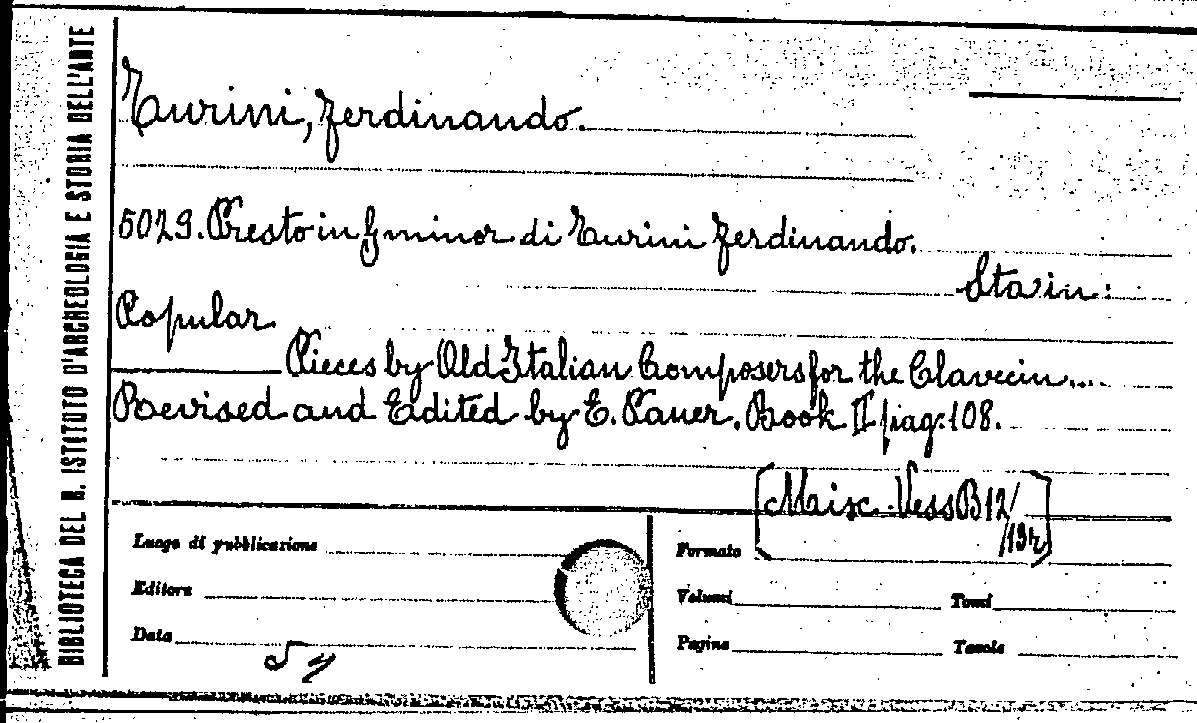 BIBLIOTECA DEL R. ISTITUTO D'ARCHEOLOGIA E STORIA DELL'ARTE
Turini, Ferdinando.
5029. Presto in G minor di Turini Ferdinando.
Sta in:
Popular
Pieces by Old Italian Composers for the Clavecin...
Revised and Edited by E. Pauer. Book II pag: 108.
[Misc. Vess B 12/
/13
Luogo di pubblicazione
Formato
Editore
Volumi
Tomi
Data
Pagine
Tavole